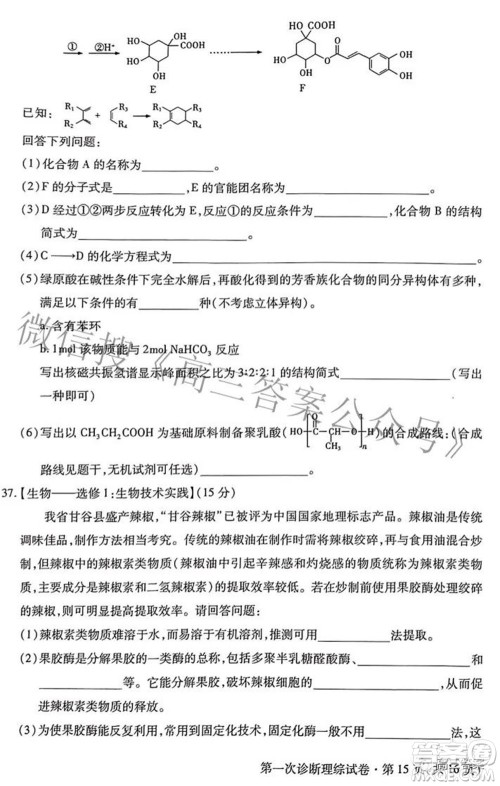 ① ②H⁺
HO COOH
HO OH
OH
E
HO COOH
HO O OH
OH O OH
F
已知: R₁ R₂ + R₃ R₄ → R₁ R₃ R₂ R₄
回答下列问题:
(1)化合物 A 的名称为____________。
(2)F 的分子式是____________,E 的官能团名称为____________。
(3)D 经过①②两步反应转化为 E,反应①的反应条件为____________,化合物 B 的结构
简式为____________。
(4)C⟶D 的化学方程式为____________。
(5)绿原酸在碱性条件下完全水解后,再酸化得到的芳香族化合物的同分异构体中,满足
以下条件的有____________种(不考虑立体异构)。
a. 含有苯环
b. 1mol 该物质能与 2mol NaHCO₃ 反应
写出核磁共振氢谱显示峰面积之比为 3∶2∶2∶1 的结构简式____________(写出
一种即可)
(6)写出以 CH₃CH₂COOH 为基础原料制备聚乳酸(HO[C(=O)—CH(CH₃)—O]ₙH)的合成路线:(合成
路线见题干,无机试剂可任选)____________
37.【生物——选修 1:生物技术实践】(15 分)
我省甘谷县盛产辣椒,“甘谷辣椒”已被评为中国国家地理标志产品。辣椒油是传统
调味佳品,制作工艺相当考究。传统的辣椒油工艺主要通过油淋和浸提方法处理碎的
辣椒,为提高辣椒油中呈现辣椒油特有香辣感和灼烧感的物质——辣椒素类物质(主要
成分是辣椒素和二氢辣椒素)的提取效率。若在浸提前使用果胶酶处理绞碎
的辣椒,可明显提高提取效率。请回答问题:
(1)辣椒素类物质难溶于水,而易溶于有机溶剂,推测可用____________法提取。
(2)果胶酶是分解果胶的一类酶的总称,包括多聚半乳糖醛酸酶、____________和
____________等。它能破坏____________,使辣椒组织分解、出汁更容易,从而促
进辣椒素类物质的提取。
(3)为使果胶酶能反复利用,可采用固定化酶技术,固定果胶酶不宜采用____________法,这
第一次诊断理综试卷・第 15 页
微信搜《高三答案公众号》